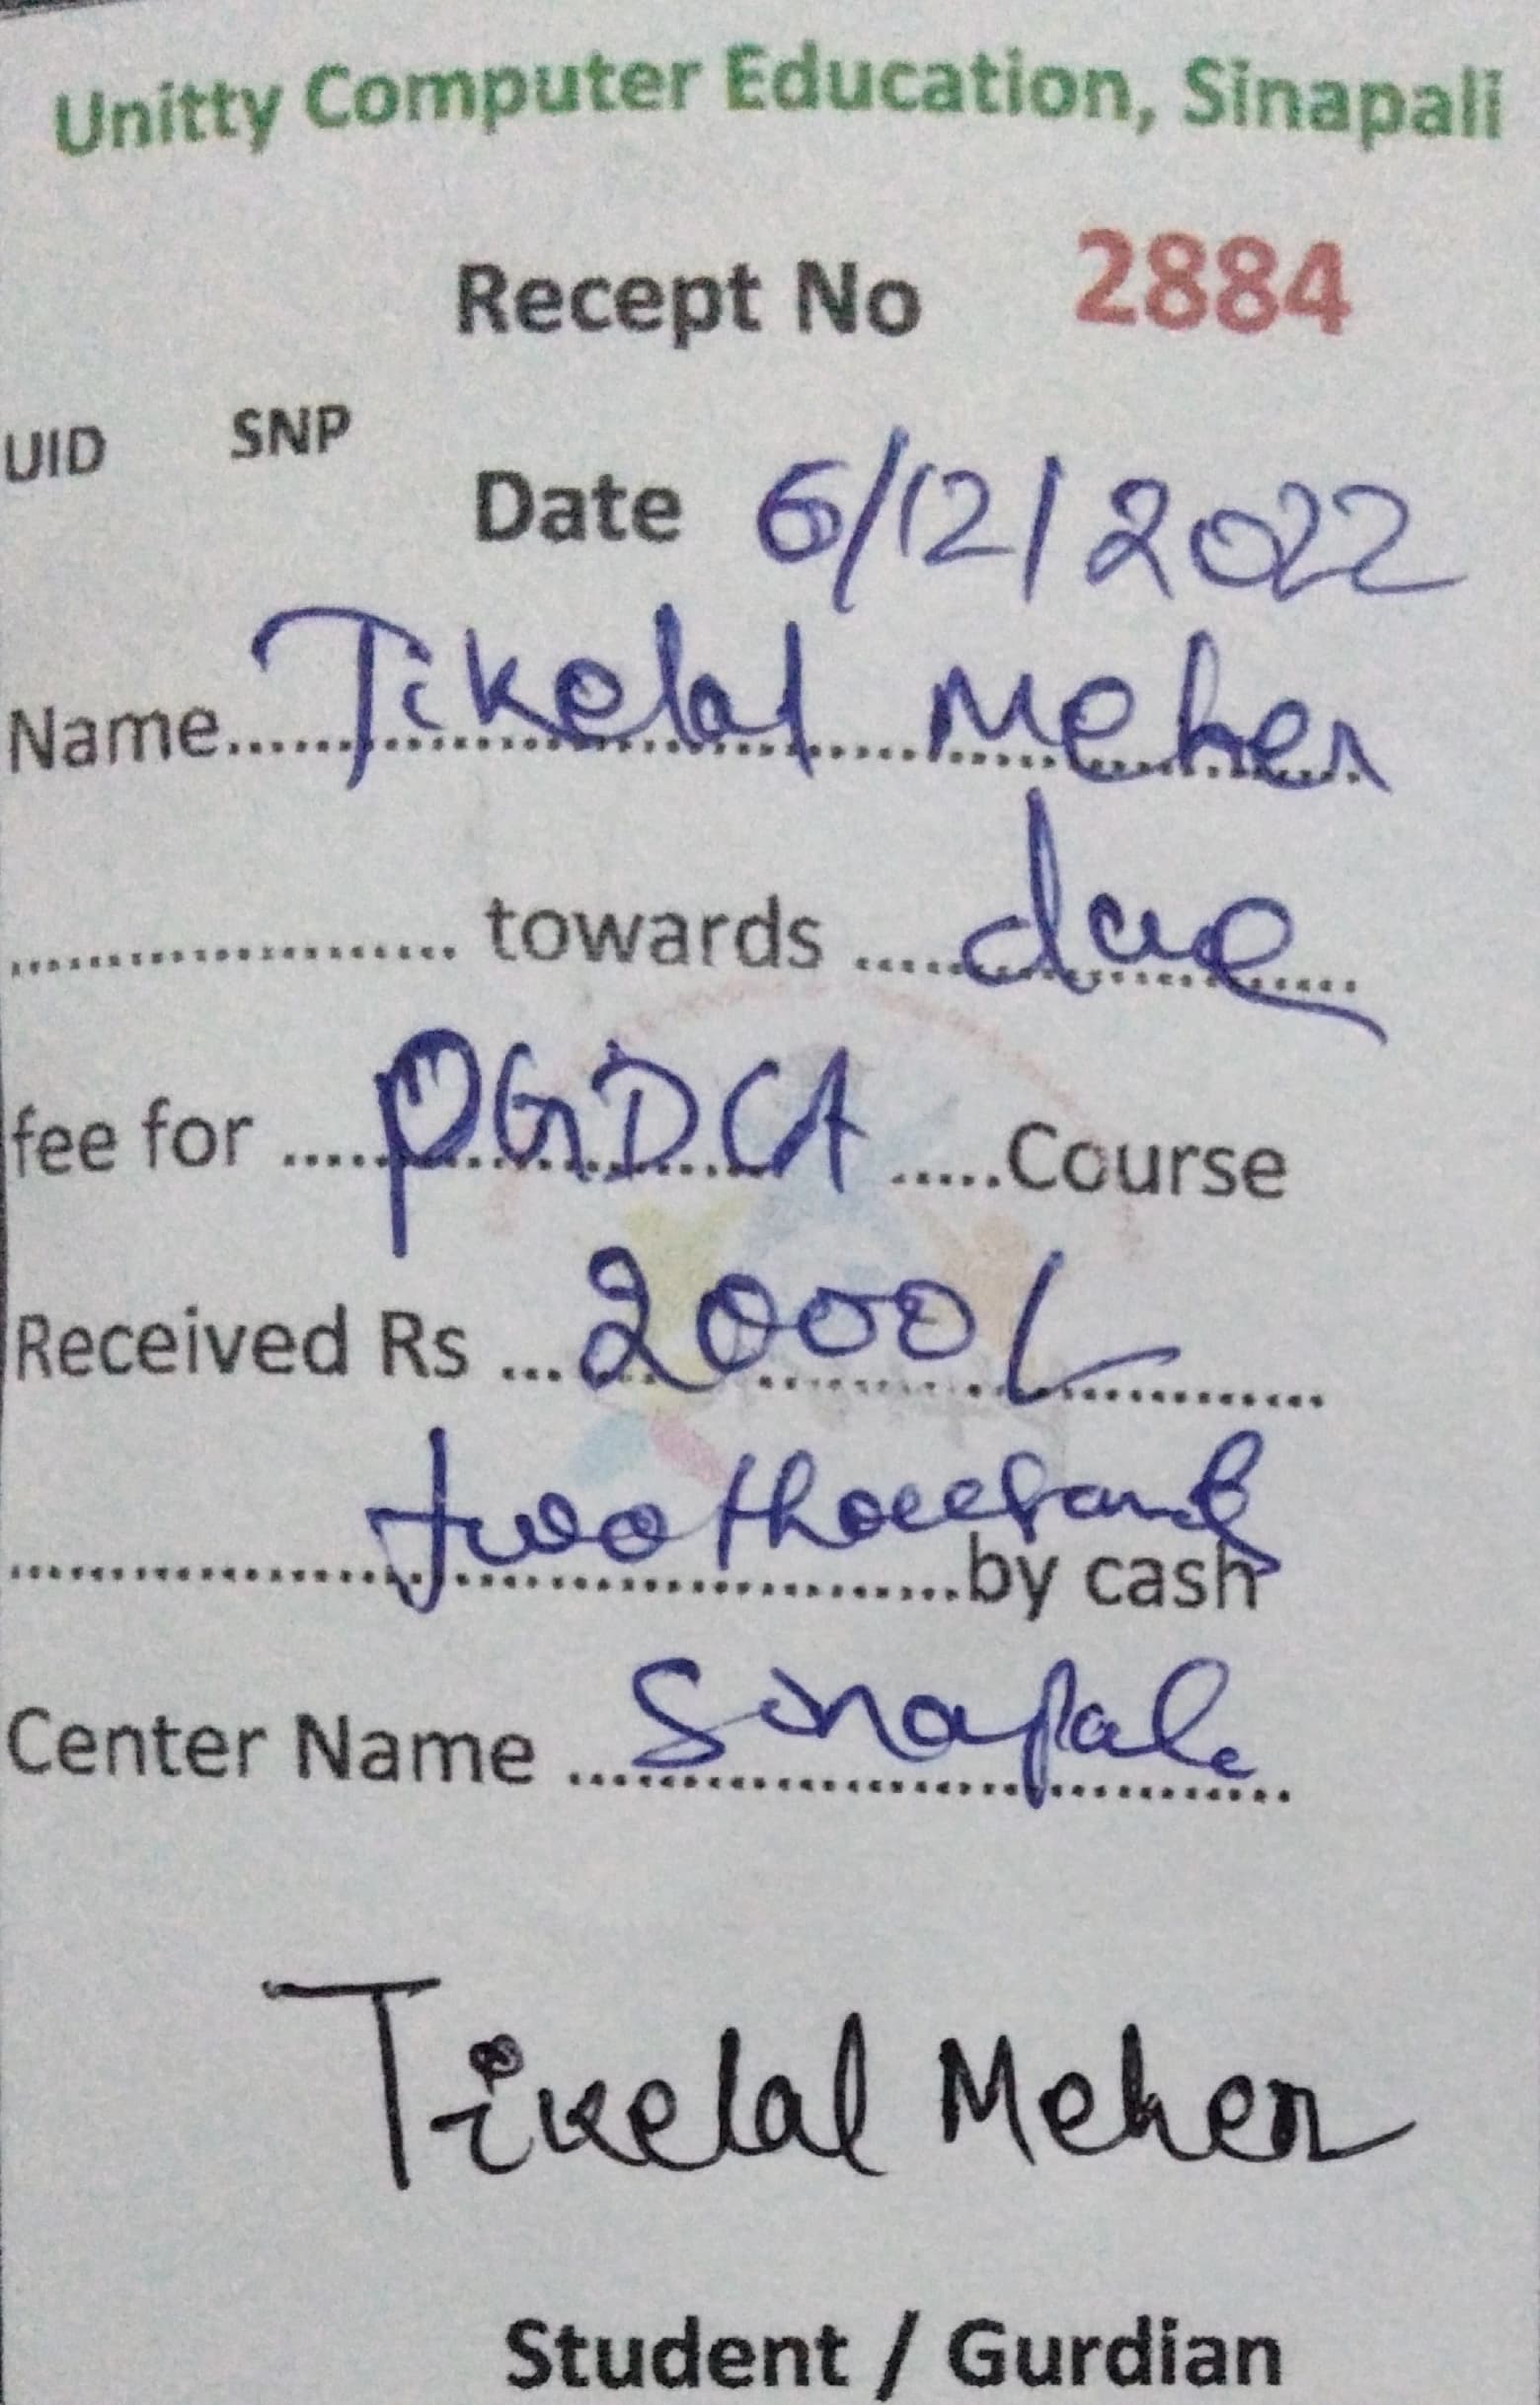 Unitty Computer Education, Sinapali
Recept No 2884
UID SNP
Date 6/12/2022
Name........Tikelal Meher
.................... towards ....due....
fee for ....PGDCA.....Course
Received Rs ...2000/-............
two thousand
..........................................by cash
Center Name ...Sinapali
Tikelal Meher
Student / Gurdian